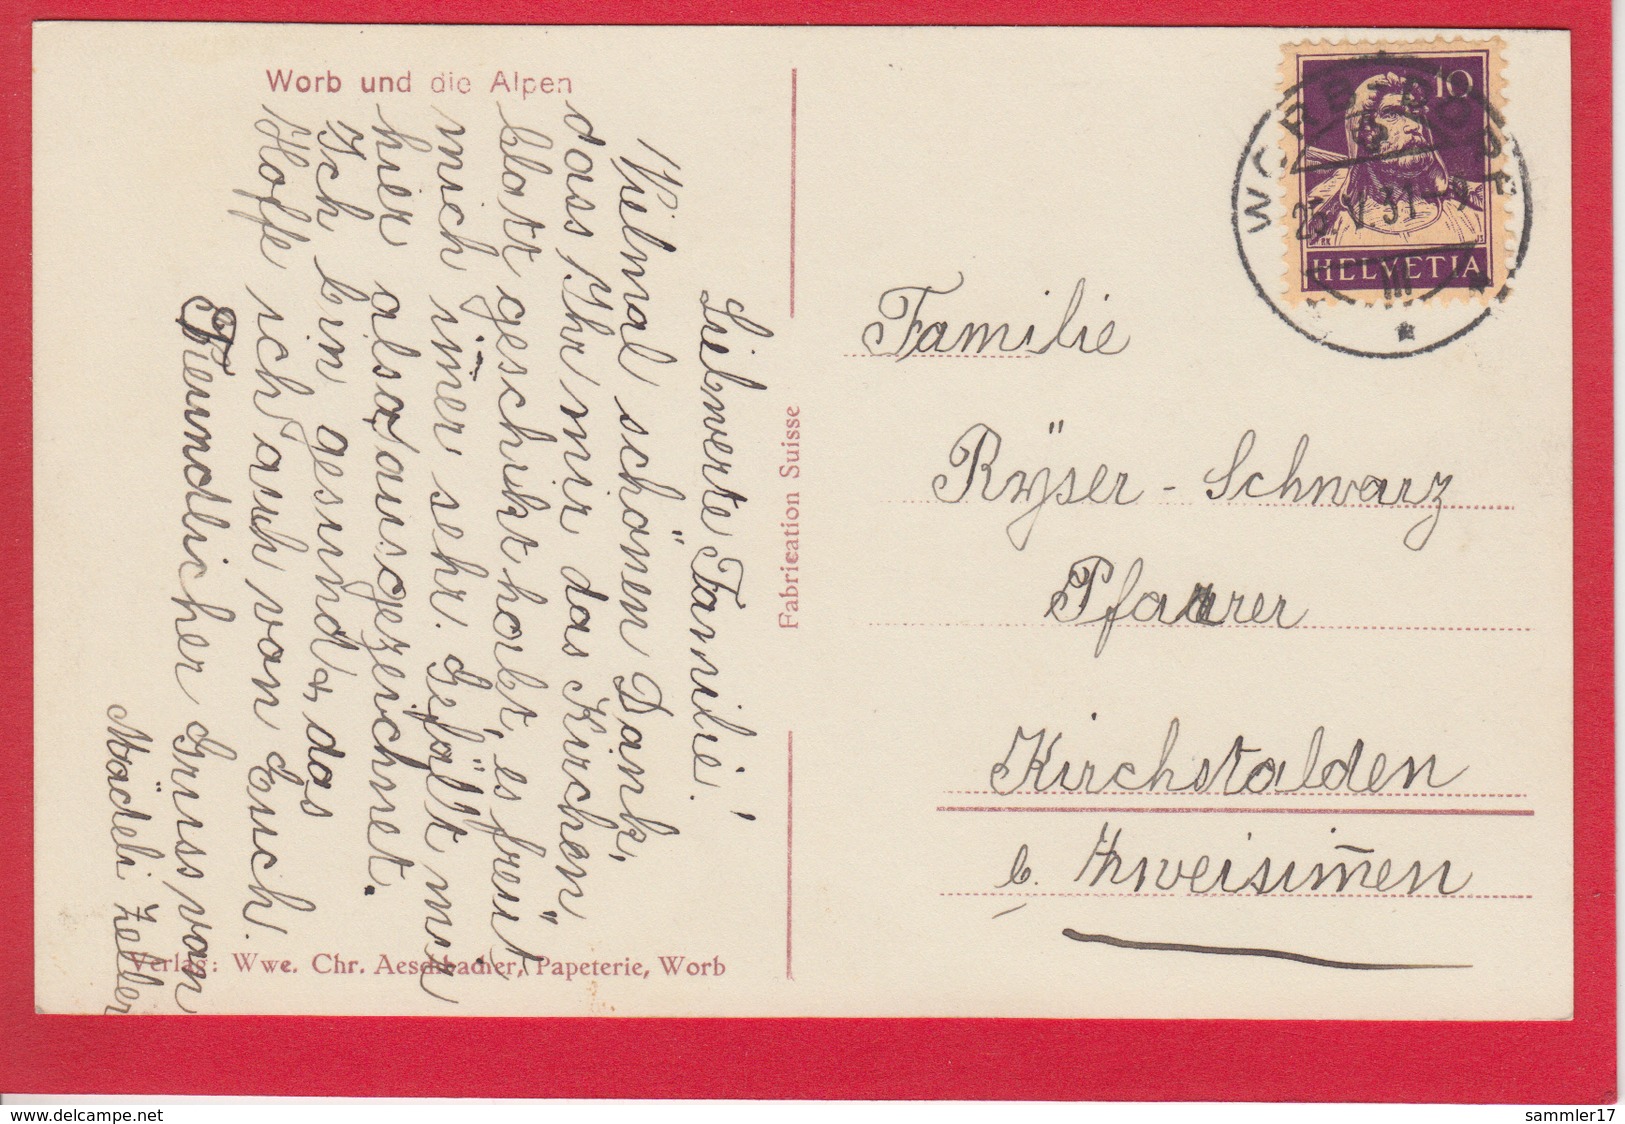 Worb und die Alpen
Liebwerte Familie!
Vielmal schönen Dank,
dass Ihr mir das Kirchen
blatt geschickt habt, es freut
mich im̅er sehr. Gefällt mir
hier also ausgezeichnet.
Ich bin gesund &, das
Hoffe ich auch von Euch.
Freundlicher Gruss von
Mädeli Zeller
Verlag: Wwe. Chr. Aeschbacher, Papeterie, Worb
Fabrication Suisse
10
HELVETIA
WORB-DORF
23. V. 31 - 9
III
Familie
Ryser - Schwarz
Pfarrer
Kirchstalden
b. Zweisim̅en
www.delcampe.net
sammler17